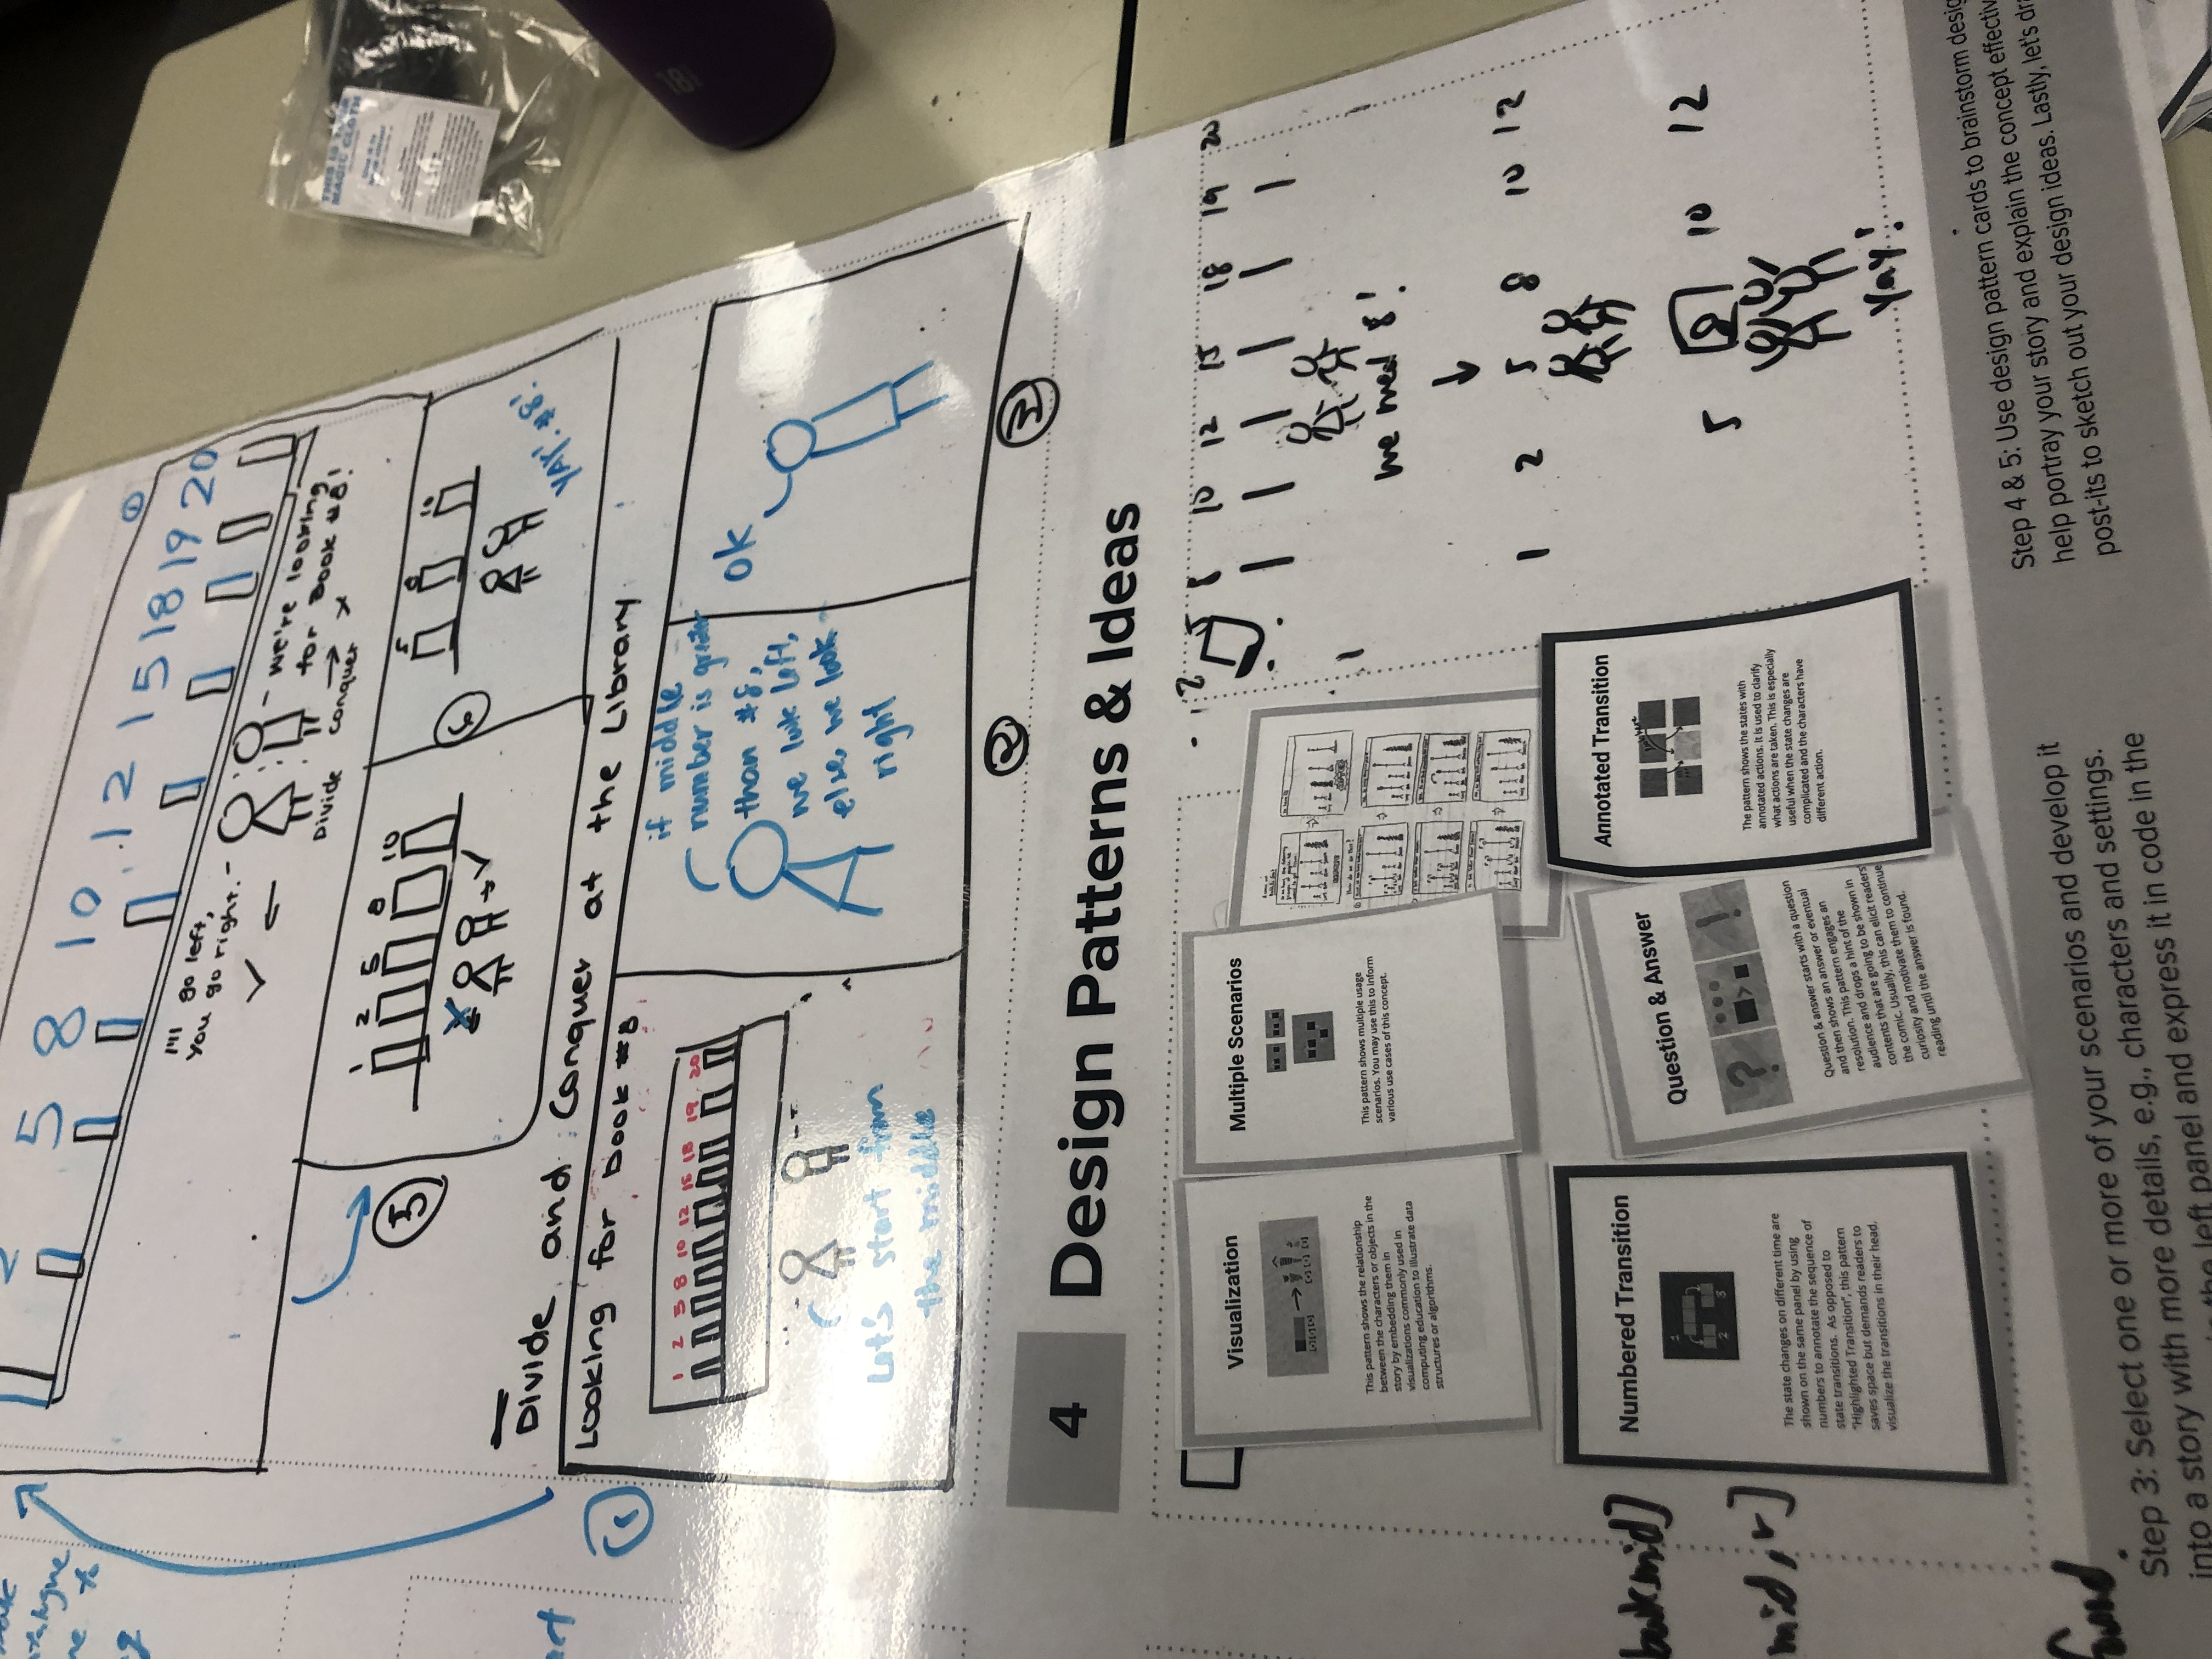 2
5
8
10
12
15
18
19
20
I'll go left,
You go right.
We're looking
for Book #8!
Divide
Conquer
5
1 2 5 8 10
6
5 8 10
YAY! #8!
Divide and Conquer at the Library
1
Looking for book #8
1 2 5 8 10 12 15 18 19 20
Let's start from
the middle
if middle
number is greater
than #8,
we look left,
else, we look
right
ok
2
3
THIS IS YOUR
MAGIC CLOTH
18
4
Design Patterns & Ideas
Visualization
This pattern shows the relationship
between the characters or objects in the
story by embedding them in
visualizations commonly used in
computing education to illustrate data
structures or algorithms.
Multiple Scenarios
This pattern shows multiple usage
scenarios. You may use this to inform
various use cases of this concept.
Numbered Transition
1
2 3
The state changes on different time are
shown on the same panel by using
numbers to annotate the sequence of
state transitions. As opposed to
"Highlighted Transition", this pattern
saves space but demands readers to
visualize the transitions in their head.
Question & Answer
? > !
Question & answer starts with a question
and then shows an answer or eventual
resolution. This pattern engages an
audience and drops a hint of the
contents that are going to be shown in
the comic. Usually, this can elicit readers'
curiosity and motivate them to continue
reading until the answer is found.
Annotated Transition
The pattern shows the states with
annotated actions. It is used to clarify
what actions are taken. This is especially
useful when the state changes are
complicated and the characters have
different action.
2 5 8 10 12 15 18 19 20
1
we need 8!
1 2 5 8 10 12
5 8 10 12
Yay!
mid]
mid, r]
found.
Step 3: Select one or more of your scenarios and develop it
into a story with more details, e.g., characters and settings.
the left panel and express it in code in the
Step 4 & 5: Use design pattern cards to brainstorm desig
help portray your story and explain the concept effectiv
post-its to sketch out your design ideas. Lastly, let's dr